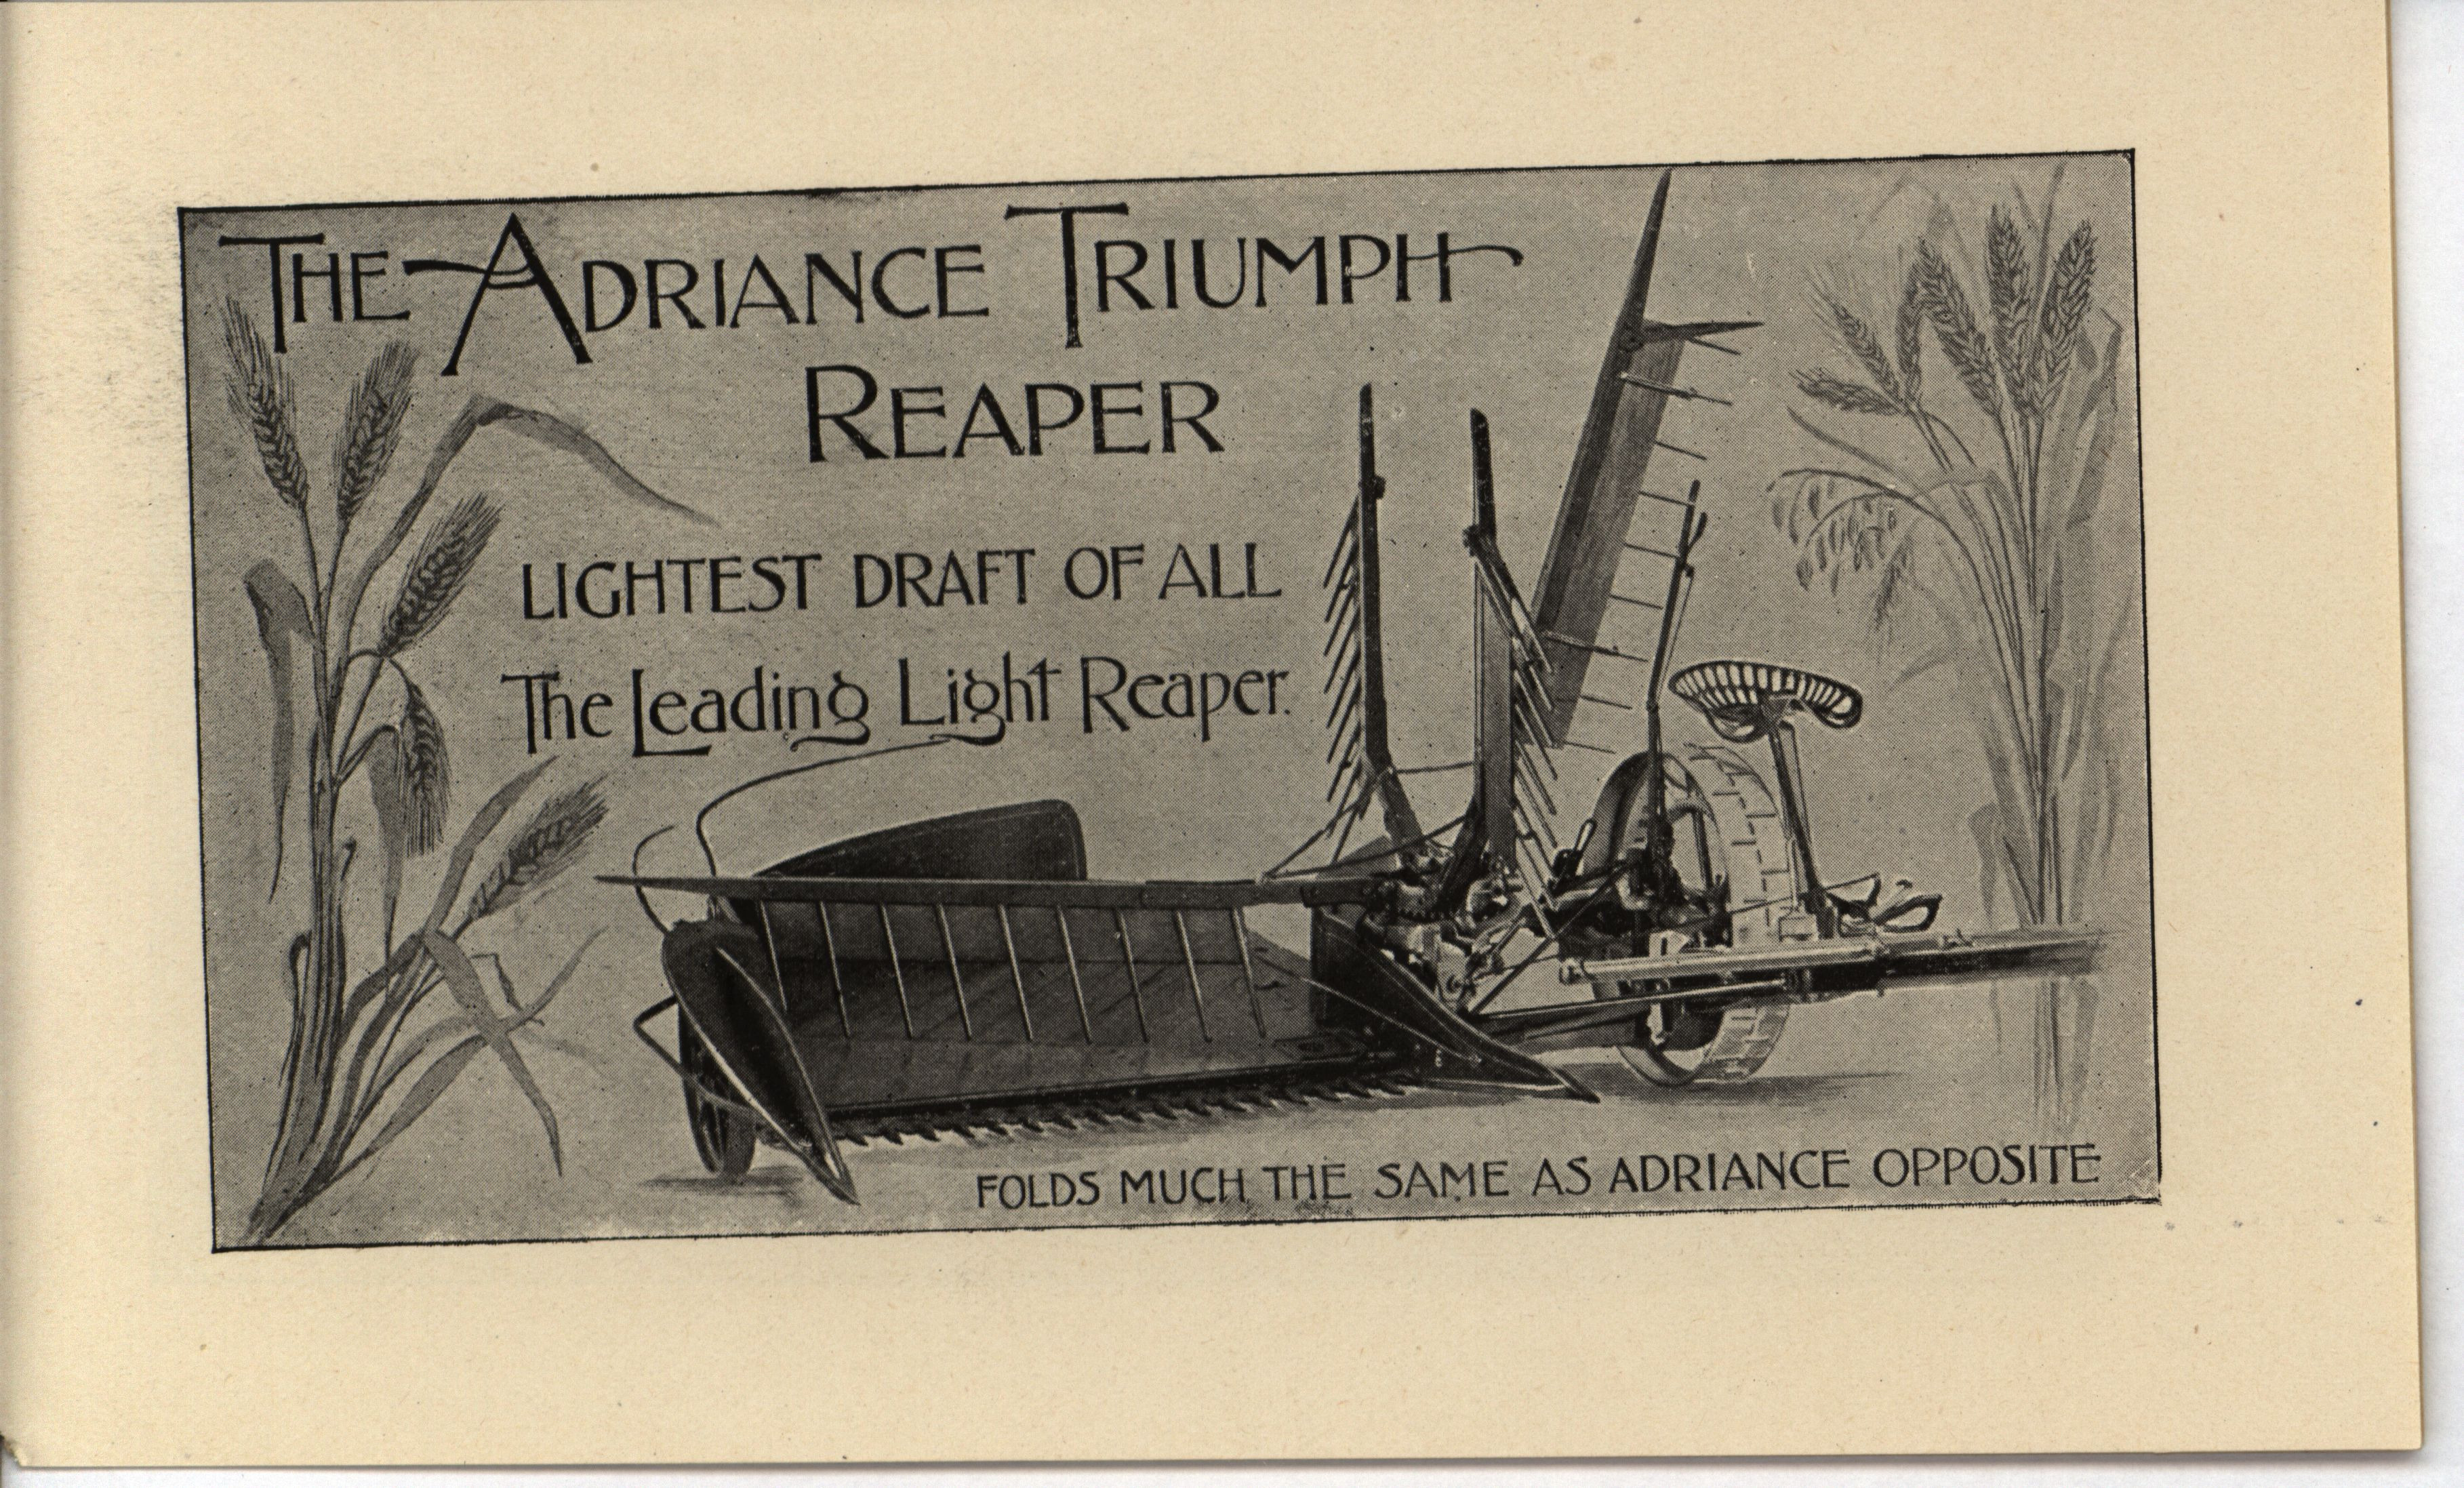 THE ADRIANCE TRIUMPH
REAPER
LIGHTEST DRAFT OF ALL
The Leading Light Reaper.
FOLDS MUCH THE SAME AS ADRIANCE OPPOSITE